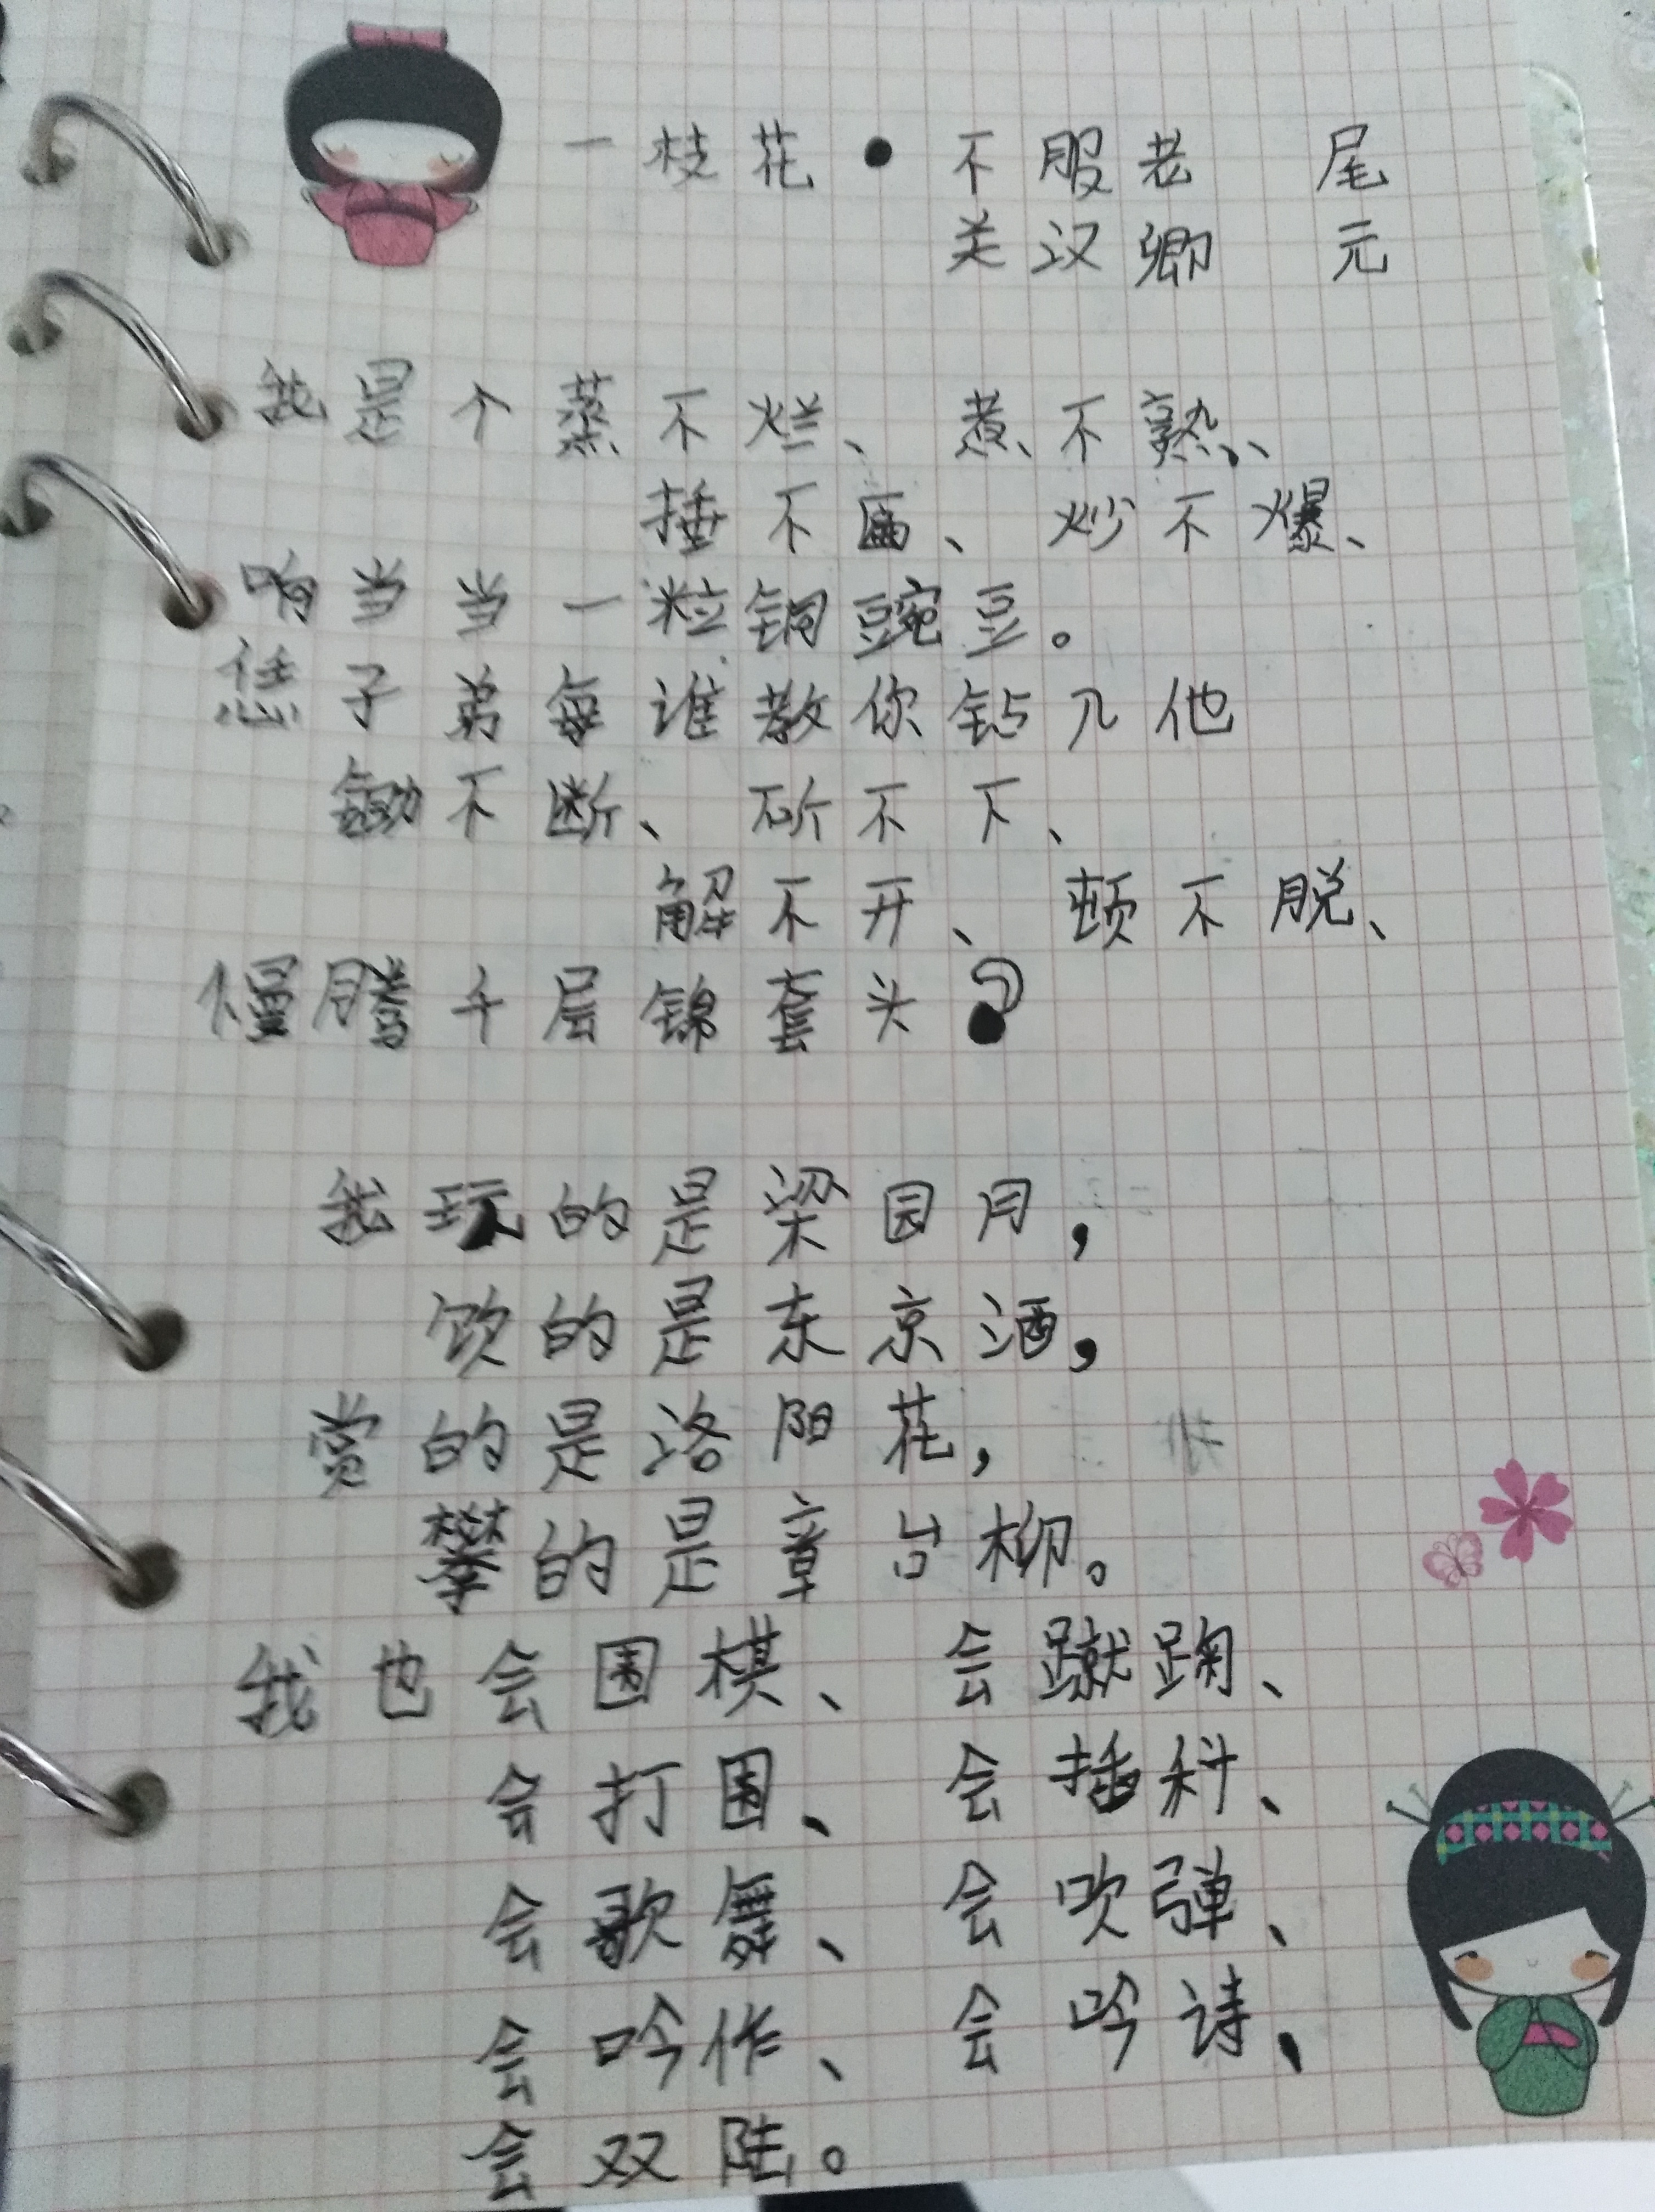 一枝花·不服老 尾
关汉卿 元
我是个蒸不烂、煮不熟、
捶不匾、炒不爆、
响当当一粒铜豌豆。
恁子弟每谁教你钻几他
锄不断、斫不下、
解不开、顿不脱、
慢腾千层锦套头
我玩的是梁园月，
饮的是东京酒，
赏的是洛阳花，
攀的是章台柳。
我也会围棋、会蹴踘、
会打围、会插科、
会歌舞、会吹弹、
会吟作、会吟诗、
会双陆。